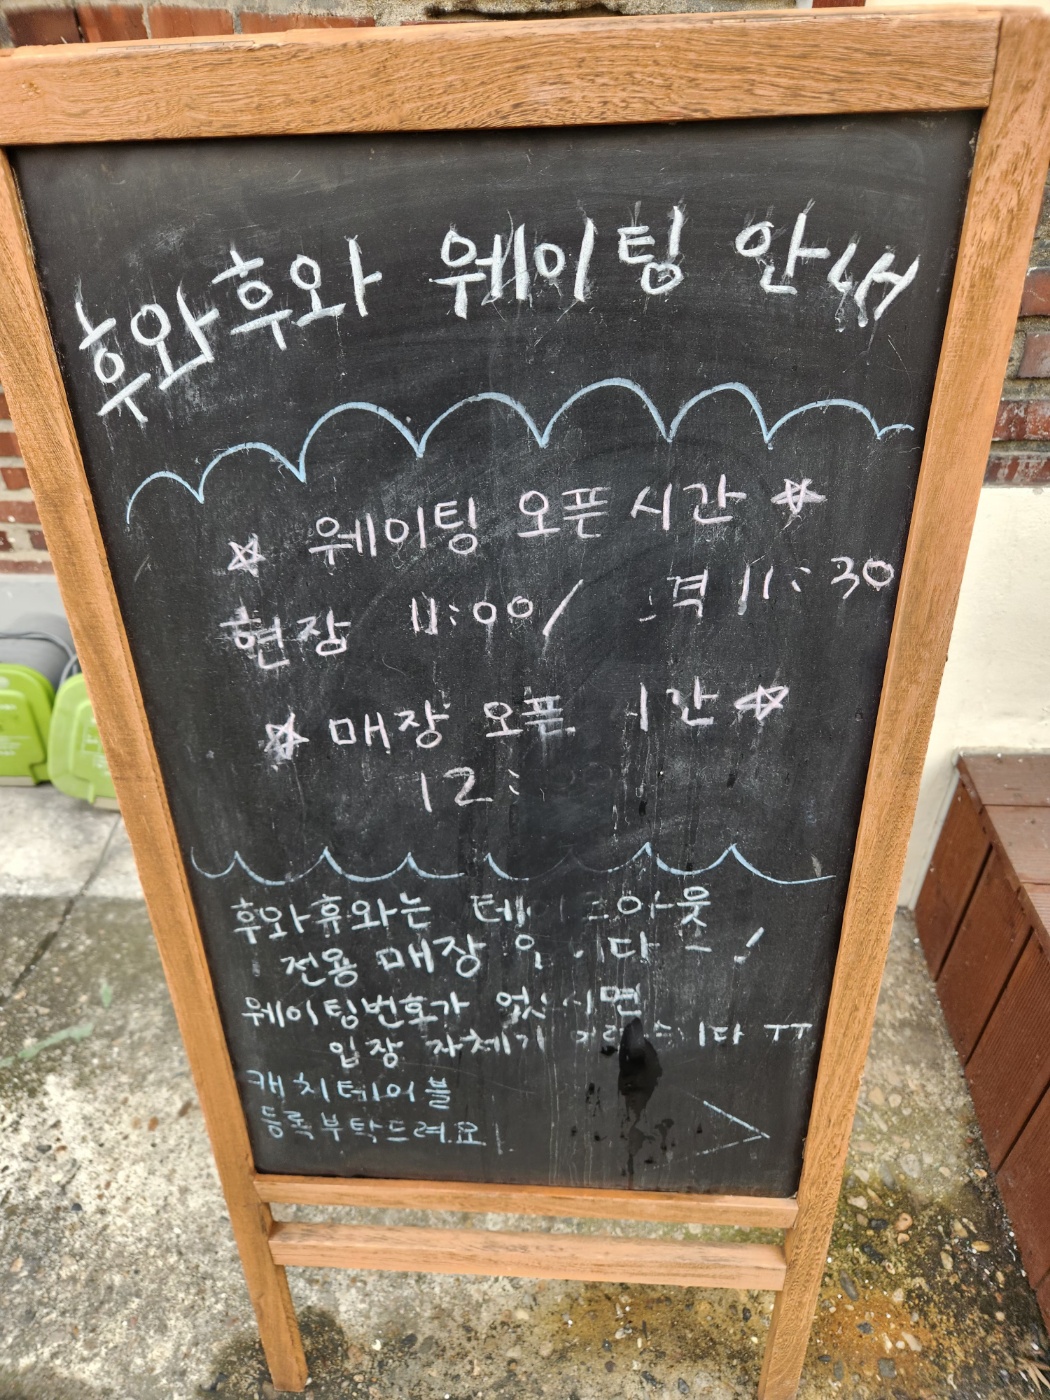 후와후와 웨이팅 안내
웨이팅 오픈 시간
현장 11:00/ 격 11:30
매장 오픈 간
12:
후와휴와는 아웃
전용 매장
웨이팅번호가
입장 자체가 ㅠㅠ
캐치테이블
등록부탁드려요